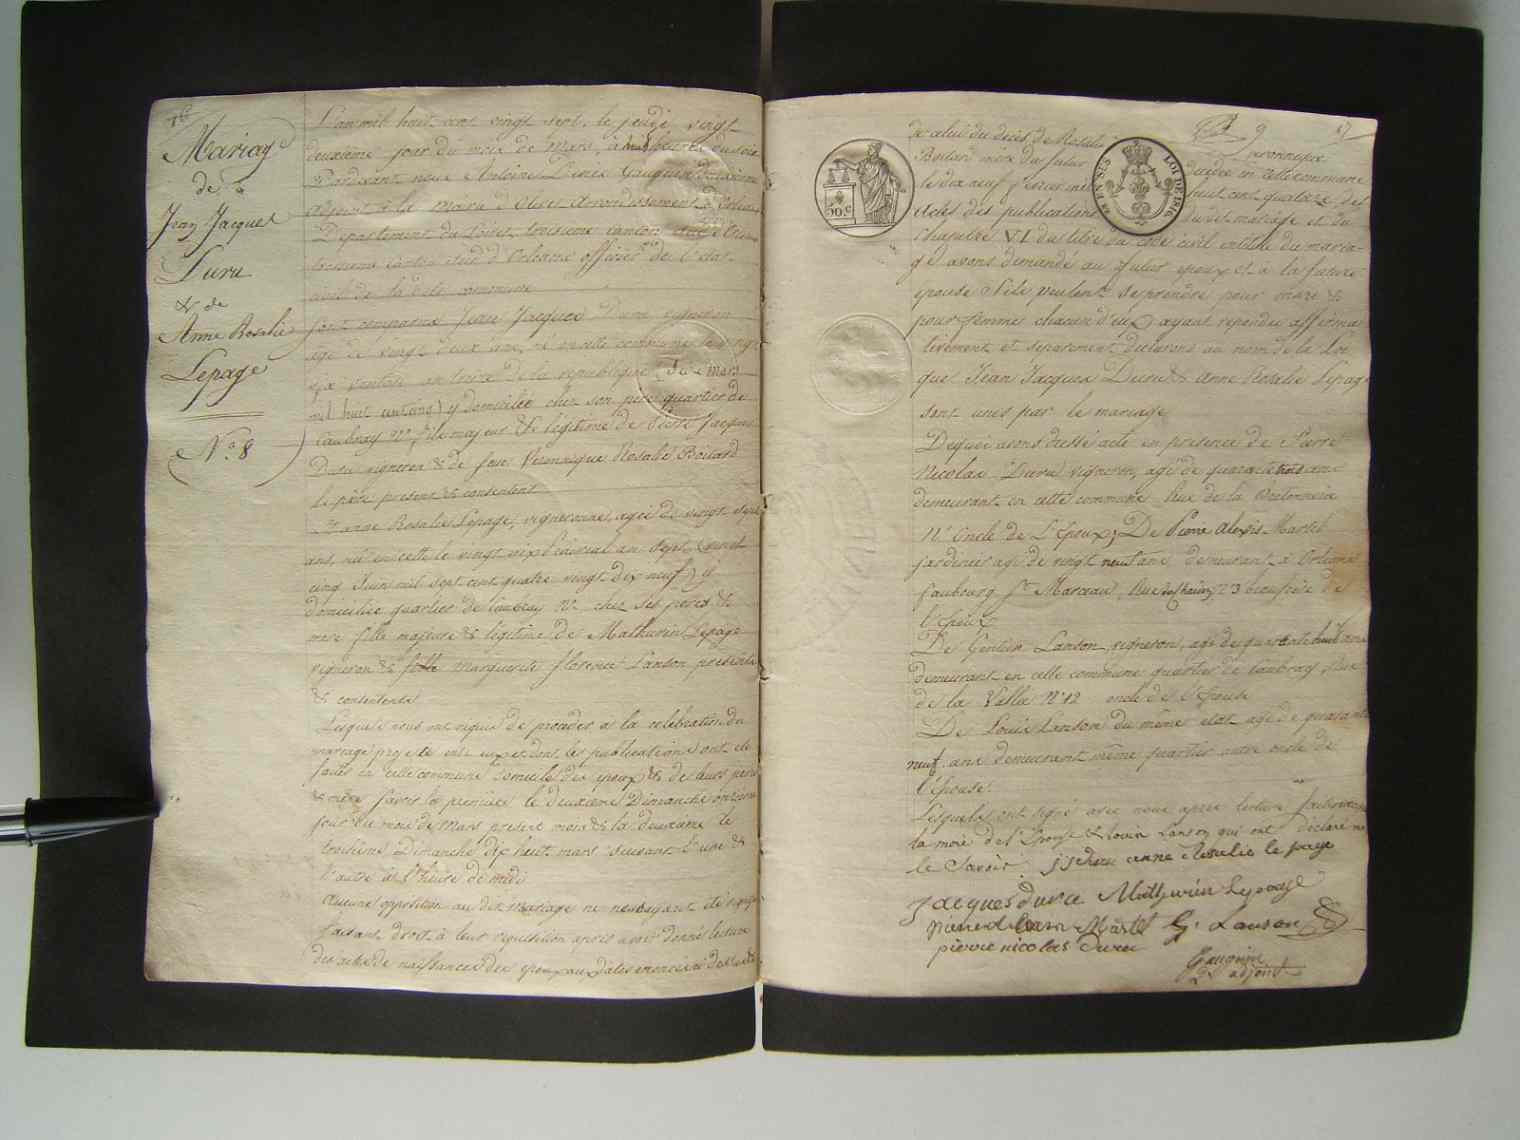 16
Mariage
de
Jean Jacques
Duru
& de
Anne Rosalie
Lepage
N.° 8
L'an mil huit cent vingt sept, le jeudi vingt
deuxième jour du mois de Mars, à huit heures du soir
Pardevant nous Antoine Denis Gauguin deuxième
adjoint à la mairie d'Olivet arrondissement d'Orléans
Département du Loiret, troisième canton
canton sud d'Orléans officier de l'état
civil de la dite commune
Sont comparus Jean Jacques Duru vigneron
agé de vingt deux ans, né en cette commune le vingt
six ventose an treize de la république (dix sept mars
mil huit cent cinq) y domicilié chez son père quartier de
Caubray N° fils majeur & légitime de Pierre Jacques
Duru vigneron & de feue Véronique Rosalie Boilard
le père présent & consentant
Et anne Rosalie Lepage, vigneronne, agée de vingt sept
ans, née en cette le vingt six floréal an sept (quinze
cinq Juin mil sept cent quatre vingt dix neuf) y
domiciliée quartier de Caubray N° chez ses pères &
mère fille majeure & légitime de Mathurin Lepage
vigneron & marguerite florence Lanson présents
& consentents
Lesquels nous ont requis de procéder à la célébration du
mariage projeté entre eux et dont les publications ont été
faites en cette commune domicile des époux & de leurs pères
& mère savoir la première le deuxième Dimanche onzième
jour du mois de Mars présent mois & la deuxième le
troisième Dimanche dix huit mars suivant l'une &
l'autre à l'heure de midi
Aucune opposition au dit mariage ne nous ayant été signifiée
faisant droit à leur réquisition après avoir donné lecture
des actes de naissances des époux aux dates énoncées des
9
17
& celui du décès de Rosalie Véronique
Boilard mère du futur décédée en cette commune
le dix neuf février mil huit cent quatorze, des
actes des publications du dit mariage et du
chapitre VI du titre du code civil intitulé du maria-
ge avons demandé au futur époux et à la future
épouse s'ils veulent se prendre pour mari &
pour femme chacun d'eux ayant répondu affirma
tivement et séparément déclarons au nom de la loi
que Jean Jacques Duru & Anne Rosalie Lepage
sont unis par le mariage
De quoi avons dressé acte en présence de Pierre
Nicolas Duru vigneron, agé de quarante trois ans
demeurant en cette commune Rue de la Bretonnerie
N° Oncle de L'époux; De Pierre Alexis Martel
jardinier agé de vingt neuf ans demeurant à Orléans
faubourg St Marceau, Rue N° 3 beaufrère de
l'époux
De Gentien Lanson, vigneron, agé de quarante huit ans
demeurant en cette commune quartier de Caubray, Rue
de la Vallée N° 12 oncle de l'épouse
De Louis Lanson du même état agé de quarante
neuf ans demeurant même quartier autre oncle de
l'épouse.
Lesquels ont signé avec nous après lecture faite
la mère de l'épouse & Louis Lanson qui ont déclaré ne
le savoir. j j duru anne rosalie le page
jacques duru Mathurin Lepage
pierre alexis Martel G. Lanson
pierre nicolas Duru
Gauguin
2e adjoint
50.C
TIMBRE
LOI DE 1816